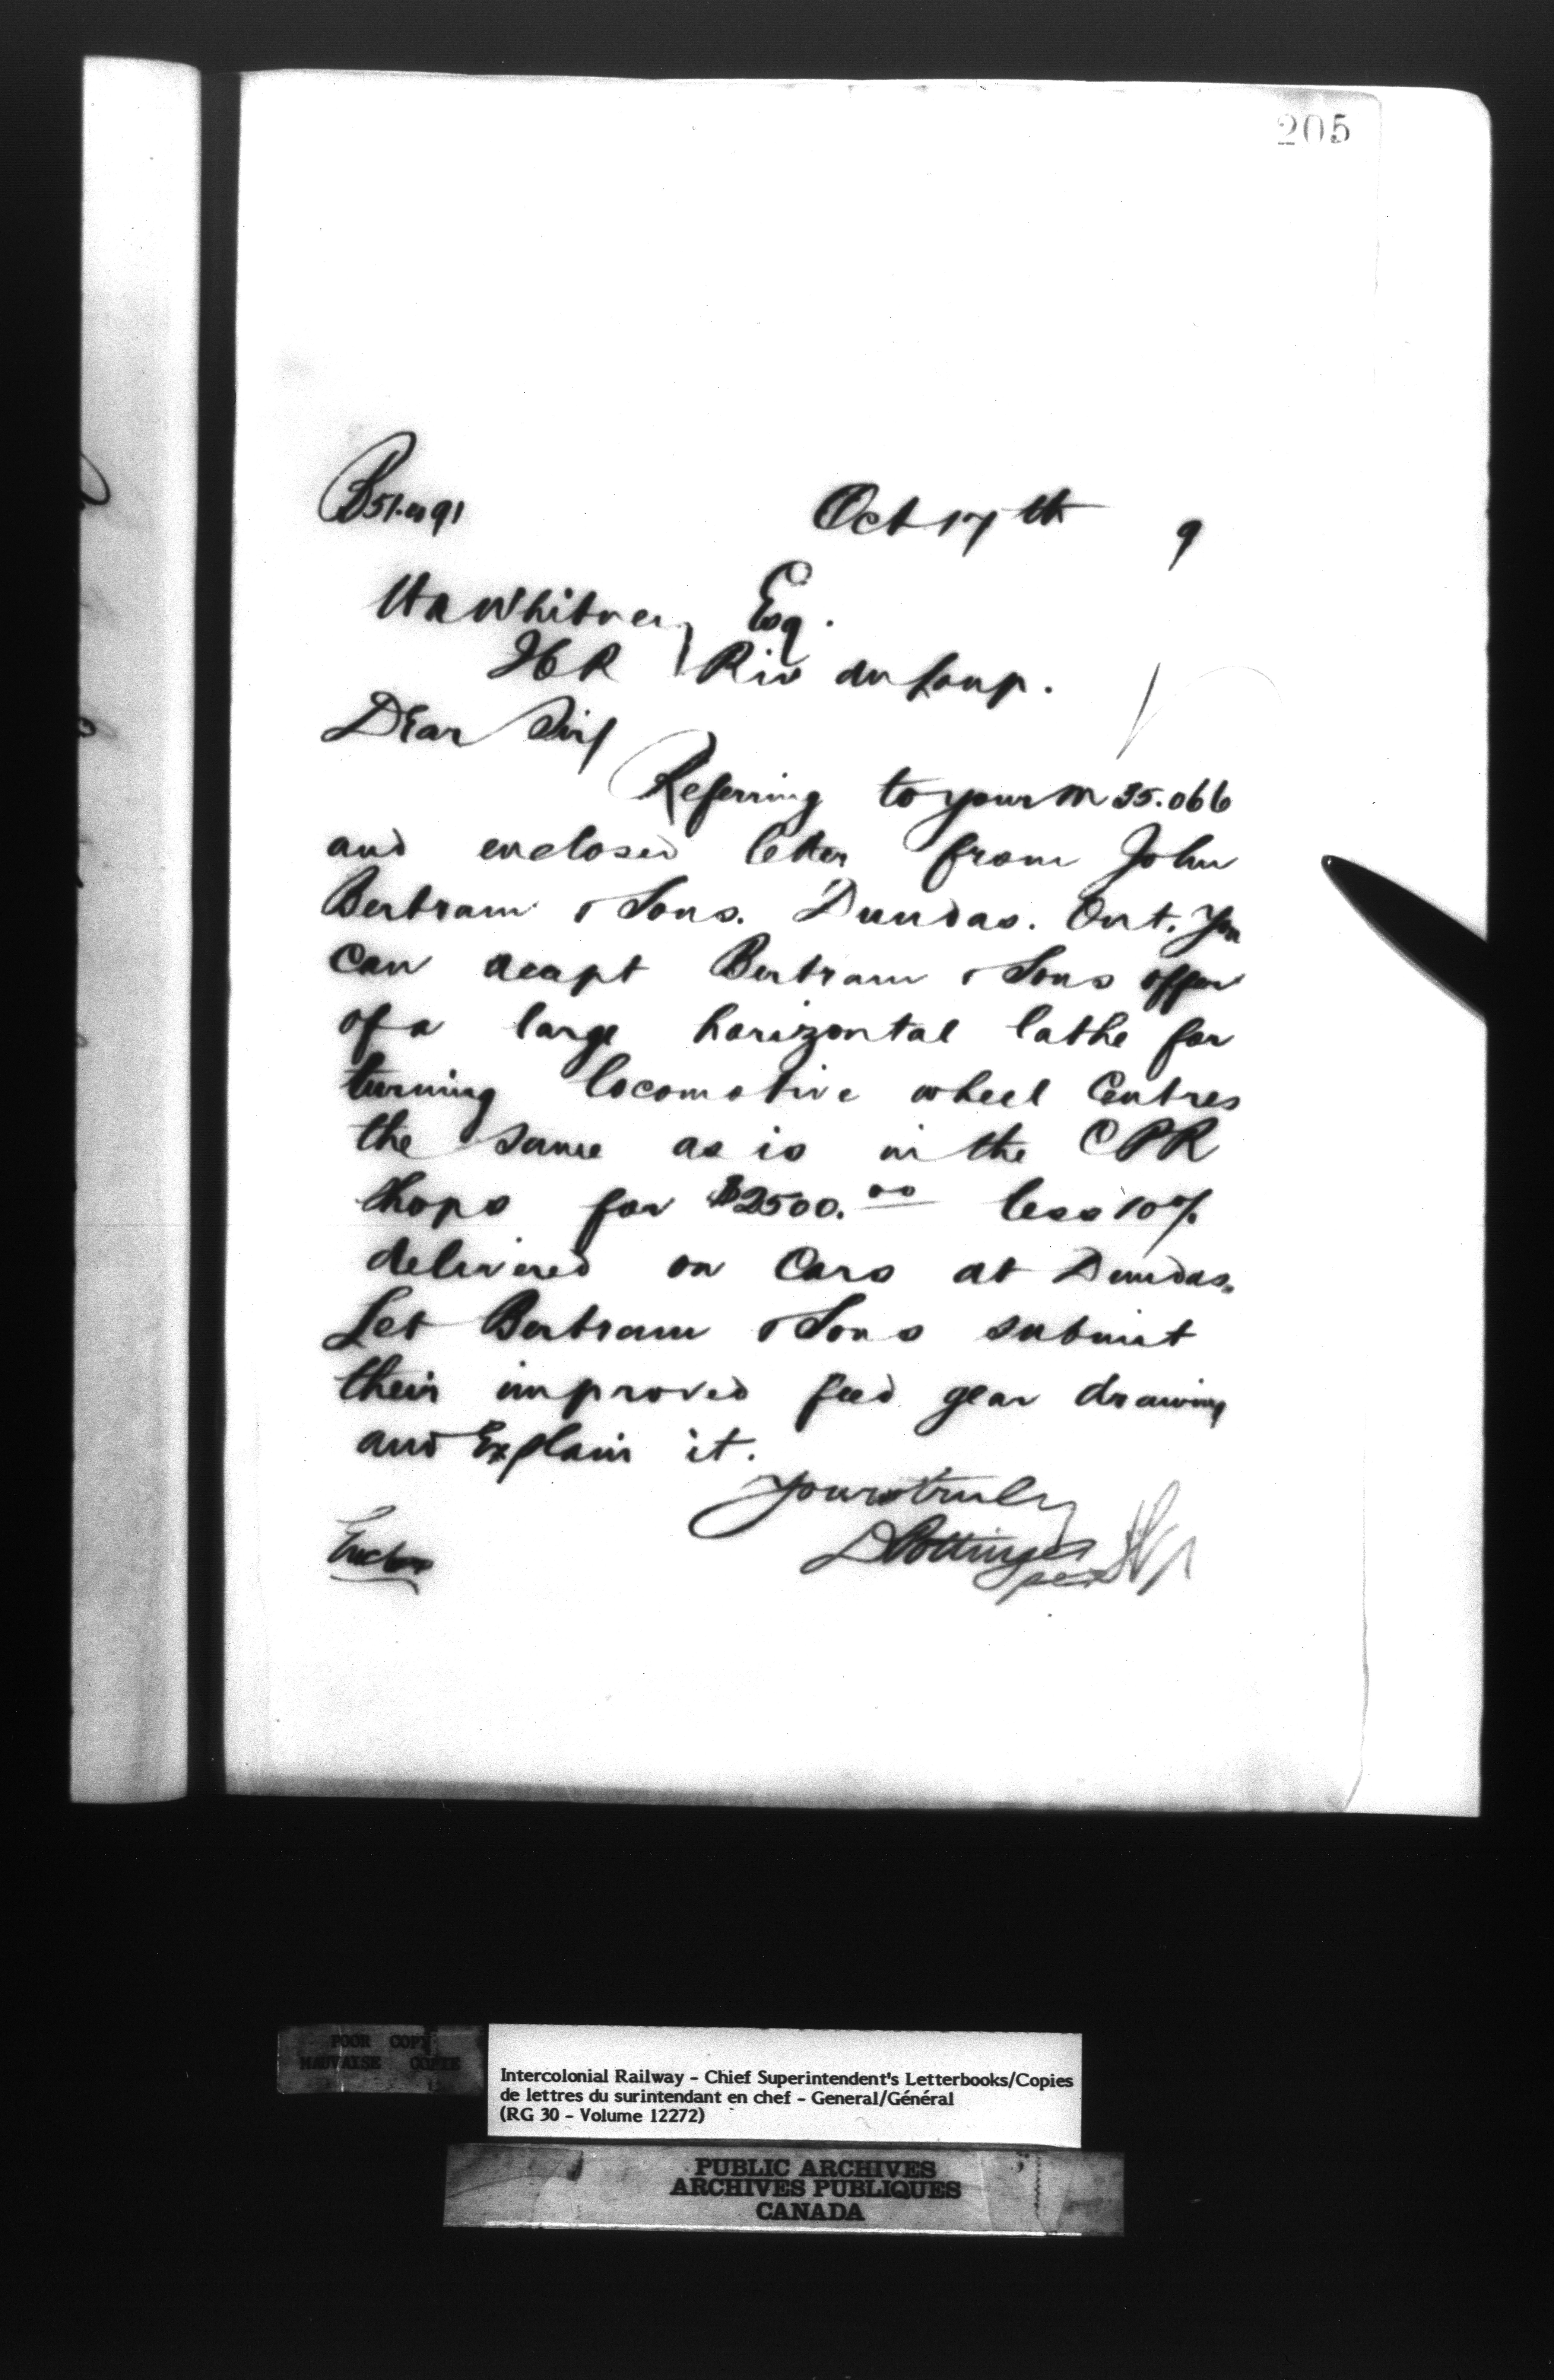 205
Oct 17th 9
HA Whitney Esq.
ICR Riv du Loup.
Dear Sir
Referring to your M 35.066
and enclosed letter from John
Bertram & Sons. Dundas. Ont. You
can accept Bertram & Sons offer
of a large horizontal lathe for
turning locomotive wheel Centres
the same as is in the CPR
Shops for $2500.00 less 10%
delivered on Cars at Dundas.
Let Bertram & Sons submit
their improved feed gear drawing
and Explain it.
Yours truly
D Pottinger
per
POOR COPY
MAUVAISE COPIE
Intercolonial Railway - Chief Superintendent's Letterbooks/Copies
de lettres du surintendant en chef - General/Général
(RG 30 - Volume 12272)
PUBLIC ARCHIVES
ARCHIVES PUBLIQUES
CANADA